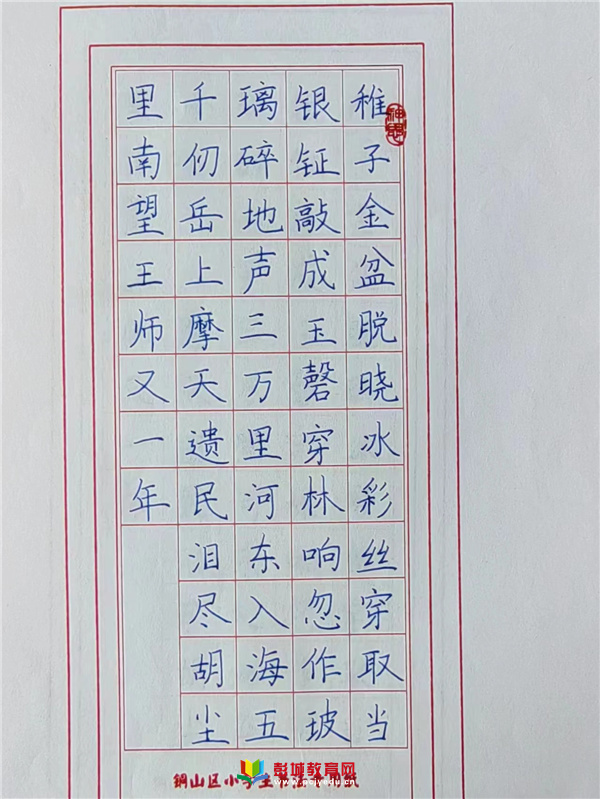 稚子金盆脱晓冰彩丝穿取当
银钲敲成玉磬穿林响忽作玻
璃碎地声三万里河东入海五
千仞岳上摩天遗民泪尽胡尘
里南望王师又一年
铜山区小学生
彭城教育网